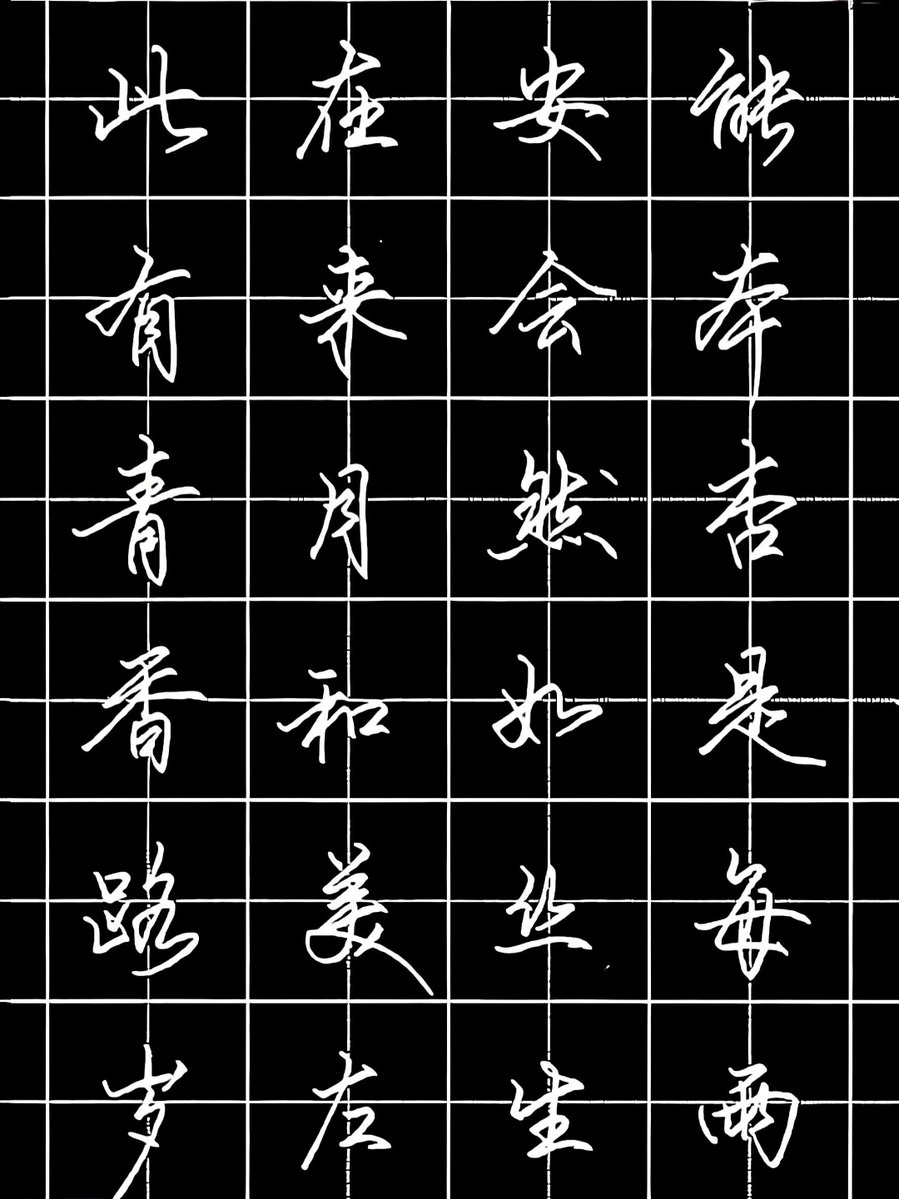 此在安能
有来会本
青月然否
香和如是
路美丝每
岁左生雨